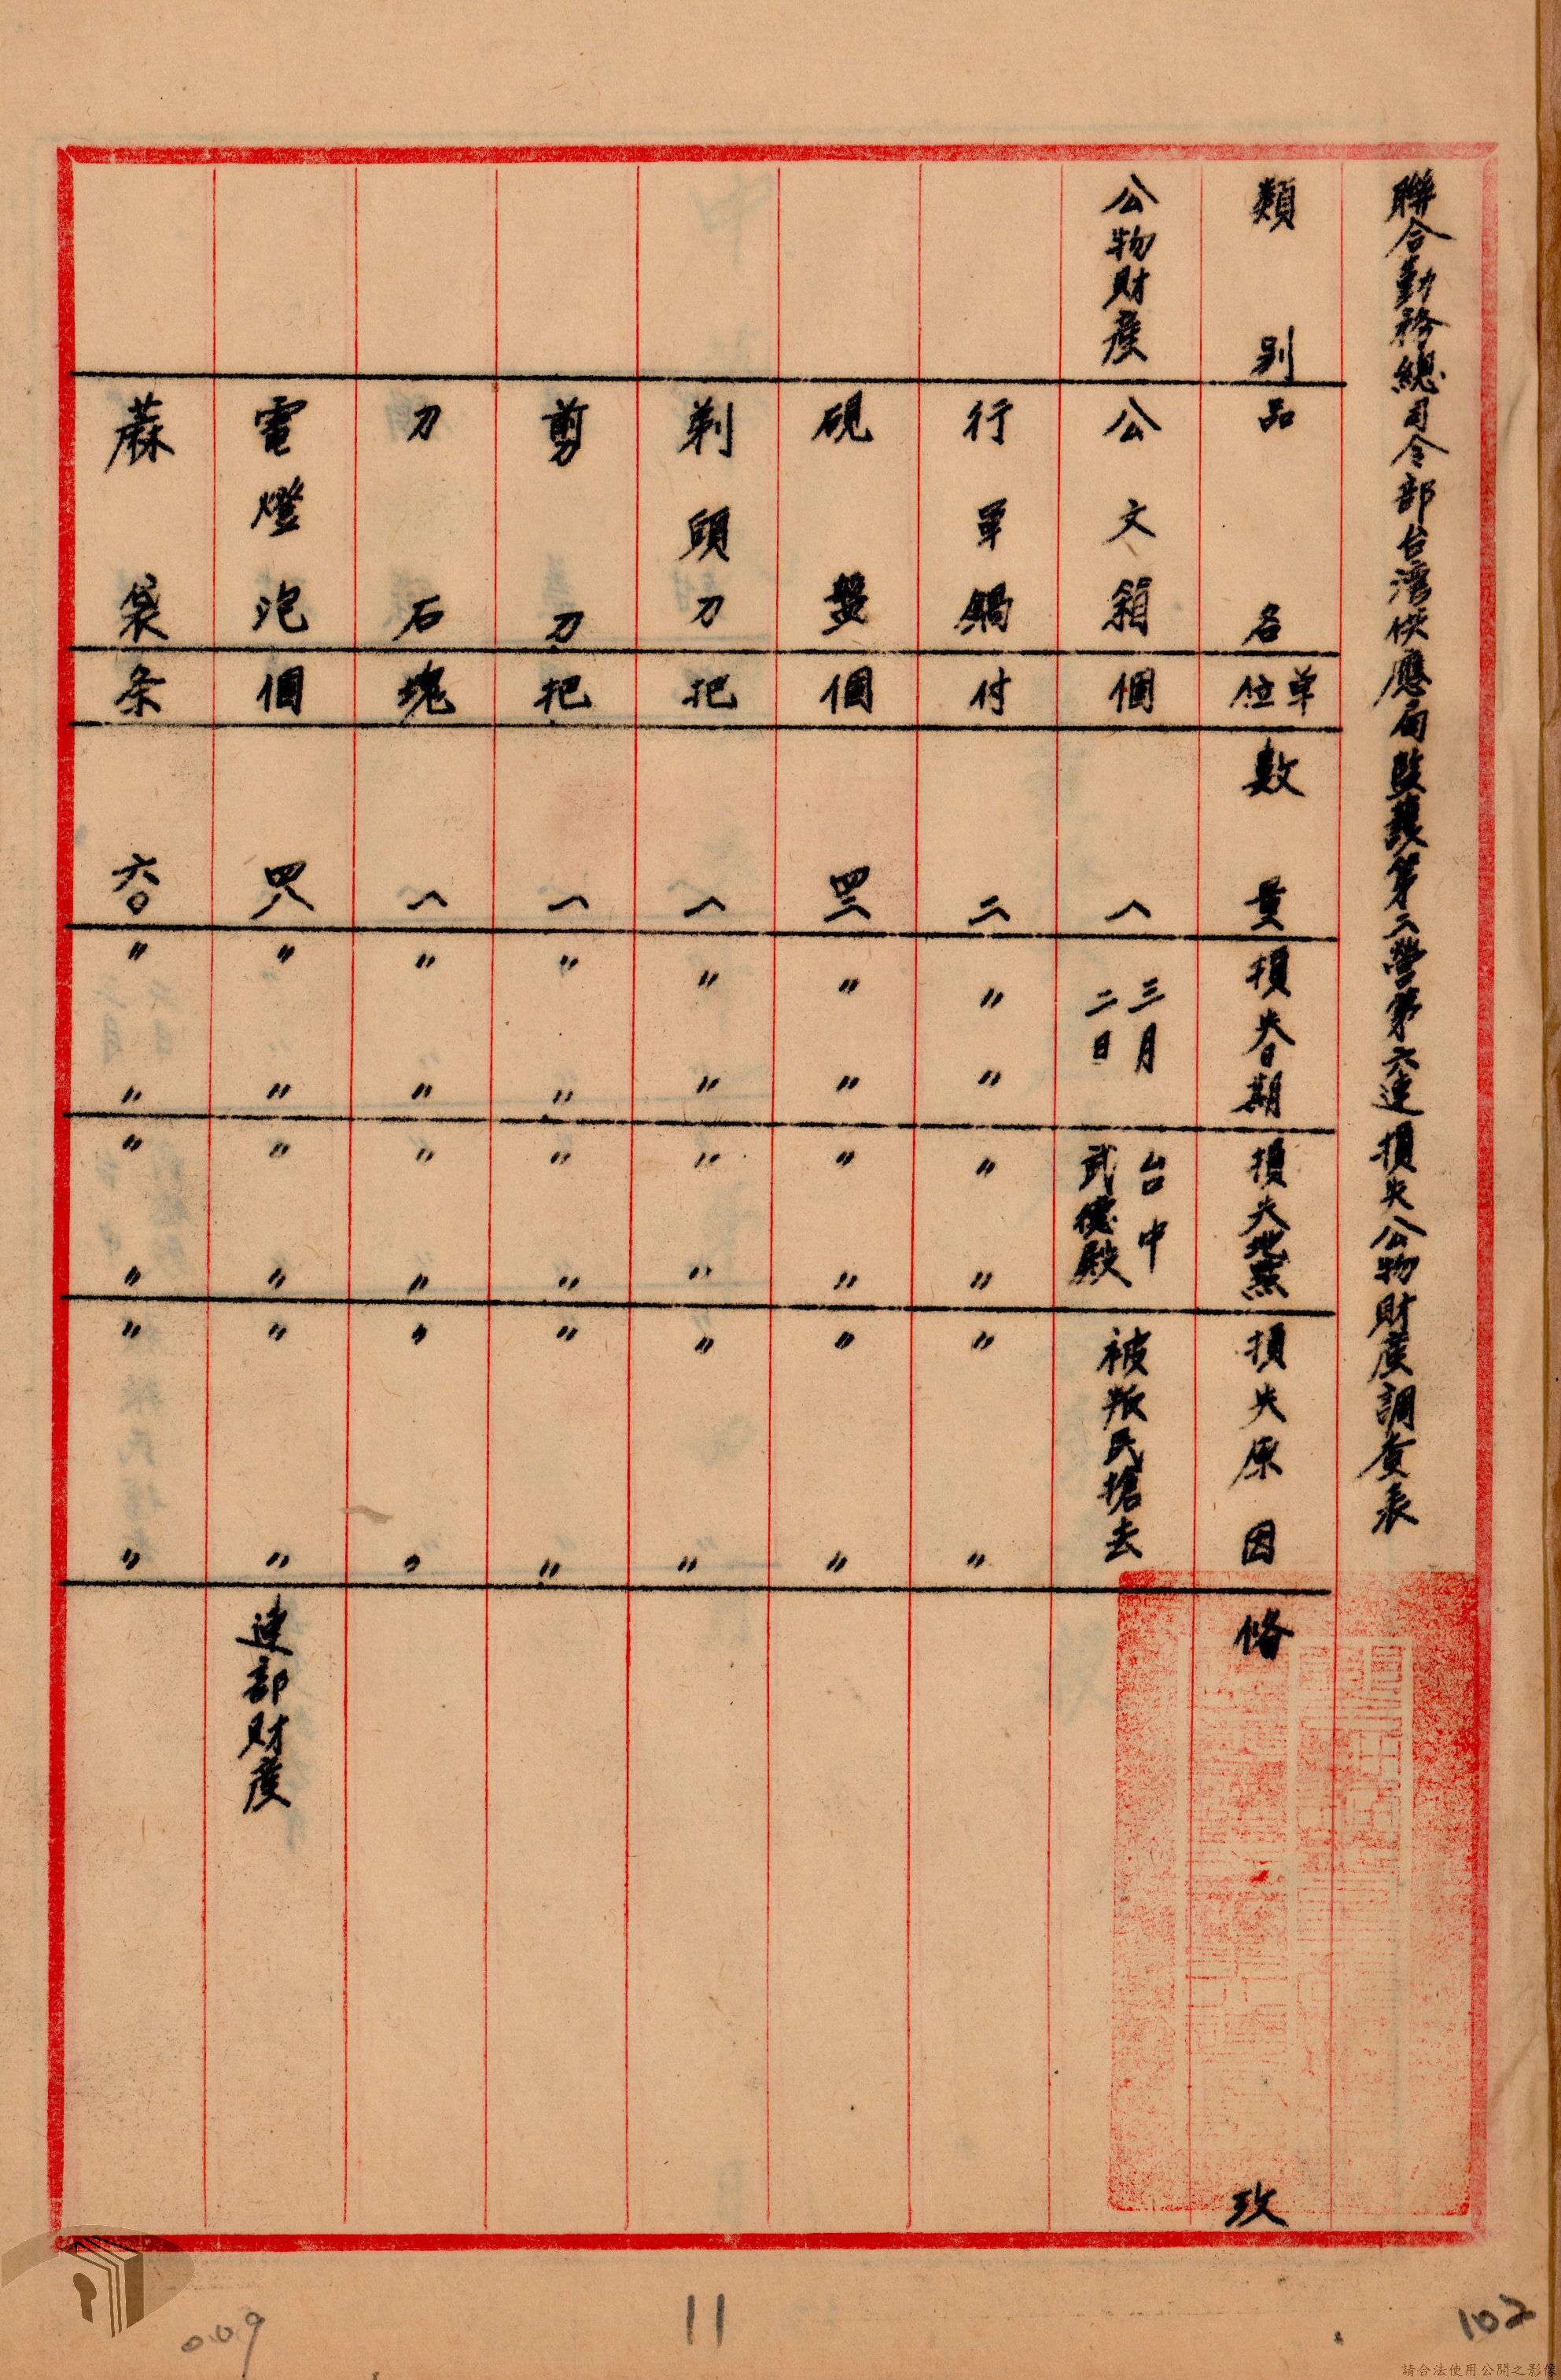 聯合勤務總司令部台灣供應局監護第二營第六連損失公物財產調查表
類別 品名 單位 數量 損失日期 損失地點 損失原因 俻攷
公物財產 公文箱 個 一 三月二日 台中武德殿 被叛民搶去
行軍鍋 付 二 〃 〃 〃 〃 〃 〃
硯盤 個 〃 〃 〃 〃 〃 〃
剃頭刀 把 一 〃 〃 〃 〃 〃 〃
剪刀 把 一 〃 〃 〃 〃 〃 〃
刀石 塊 一 〃 〃 〃 〃 〃 〃
電燈泡 個 四八 〃 〃 〃 〃 〃 〃 連部財產
蔴袋 条 六〇 〃 〃 〃 〃 〃 〃
009
11
102
請合法使用公開之影像